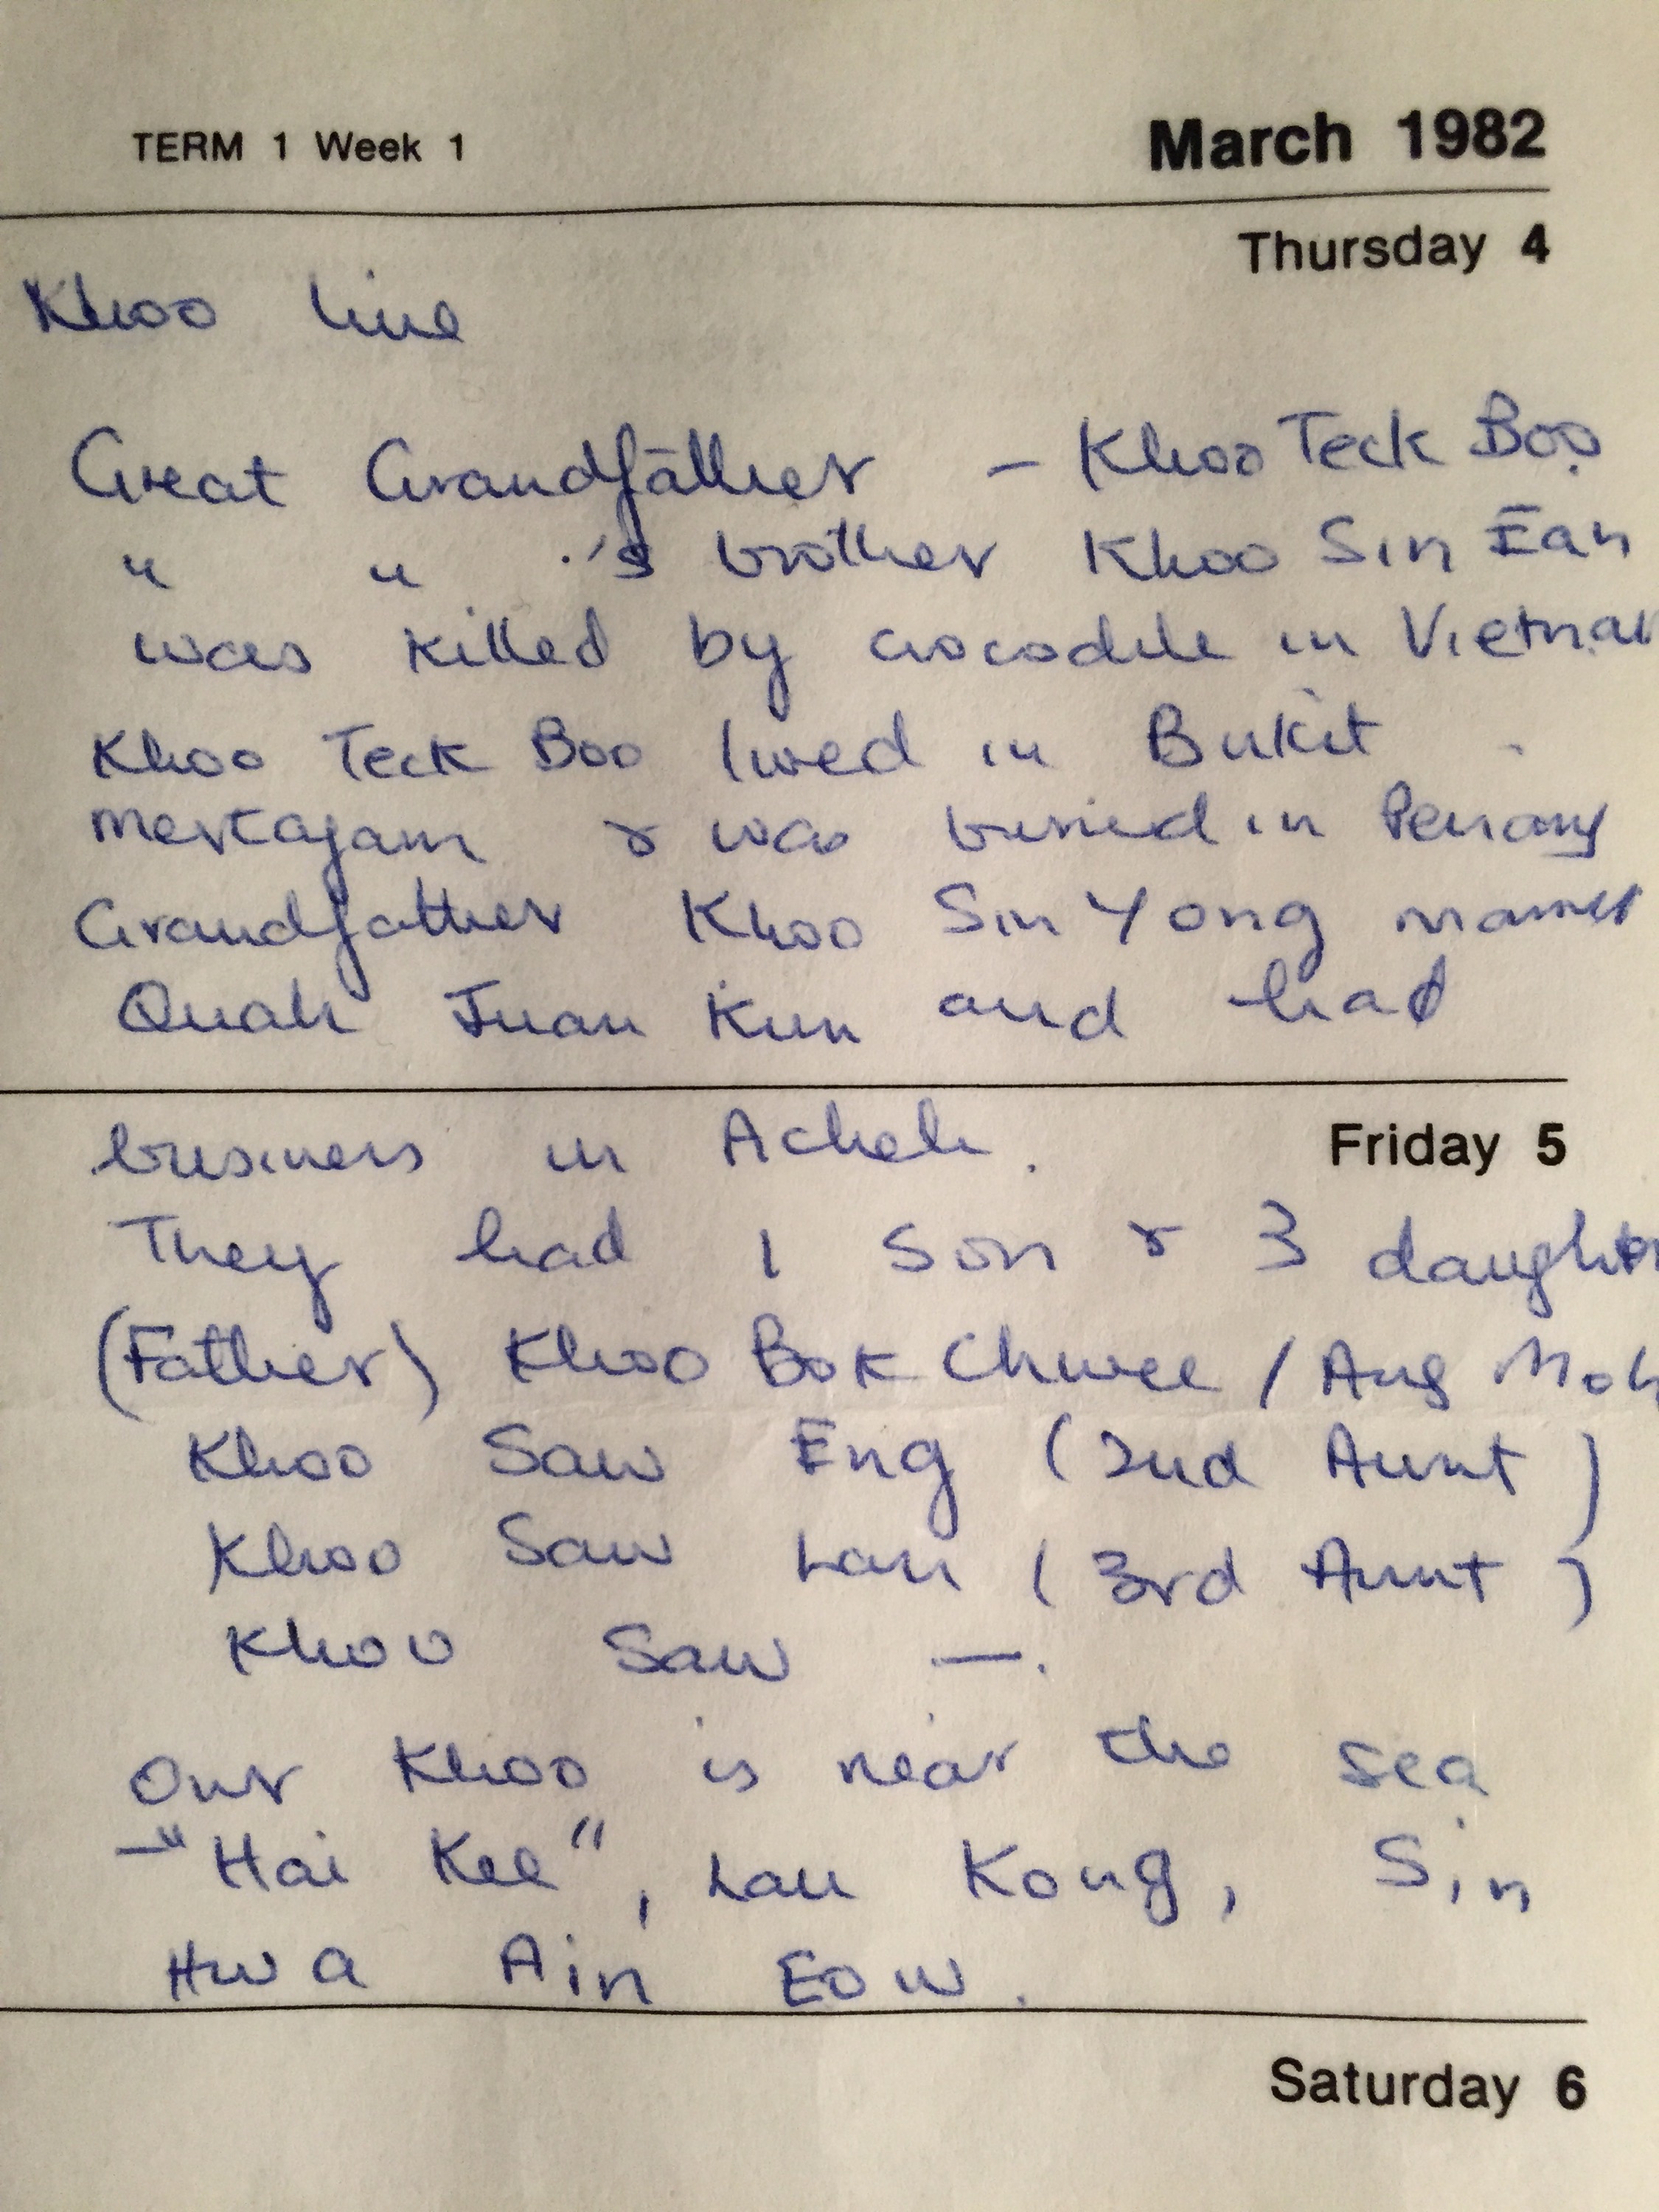 TERM 1 Week 1
March 1982
Thursday 4
Khoo line
Great Grandfather - Khoo Teck Boo
" " 's brother Khoo Sin Ean
was killed by crocodile in Vietnam
Khoo Teck Boo lived in Bukit
Mertajam & was buried in Penang
Grandfather Khoo Sin Yong married
Quah Juan Kun and had
business in Acheh.
Friday 5
They had 1 son & 3 daughters
(Father) Khoo Bok Chwee / Ang Moh
Khoo Saw Eng (2nd Aunt)
Khoo Saw Lan (3rd Aunt)
Khoo Saw —.
Our Khoo is near the sea
- "Hai Kee", Lau Kong, Sin
Hwa Ain Eow.
Saturday 6